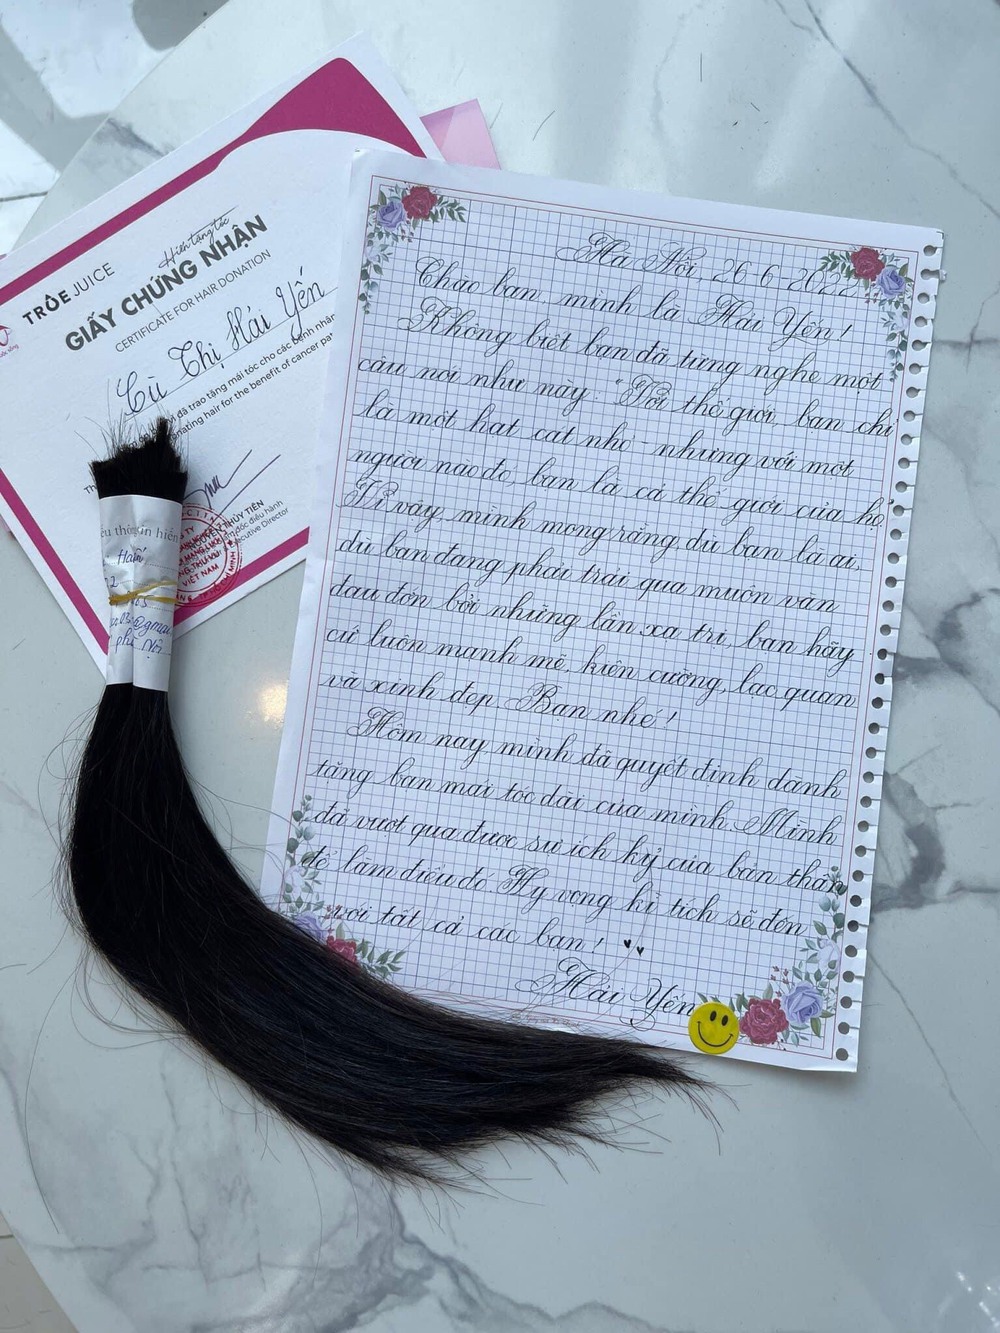 TRÓE JUICE
Hiến tặng tóc
GIẤY CHỨNG NHẬN
CERTIFICATE FOR HAIR DONATION
Cù Thị Hải Yến
đã trao tặng mái tóc cho các bệnh nhân
hair for the benefit of cancer
THÙY TIÊN
đốc điều hành
Executive Director
VIỆT NAM
Hà Nội, 26-6-2022
Chào bạn, mình là Hải Yến!
Không biết bạn đã từng nghe một
câu nói như này: "Với thế giới, bạn chỉ
là một hạt cát nhỏ - nhưng với một
người nào đó, bạn là cả thế giới của họ
Vì vậy, mình mong rằng, dù bạn là ai,
dù bạn đang phải trải qua muôn vàn
đau đớn bởi những lần xạ trị, bạn hãy
cứ luôn mạnh mẽ, kiên cường, lạc quan
và xinh đẹp Bạn nhé!
Hôm nay mình đã quyết định dành
tặng bạn mái tóc dài của mình. Mình
đã vượt qua được sự ích kỷ của bản thân
để làm điều đó. Hy vọng kì tích sẽ đến
với tất cả các bạn!
Hải Yến